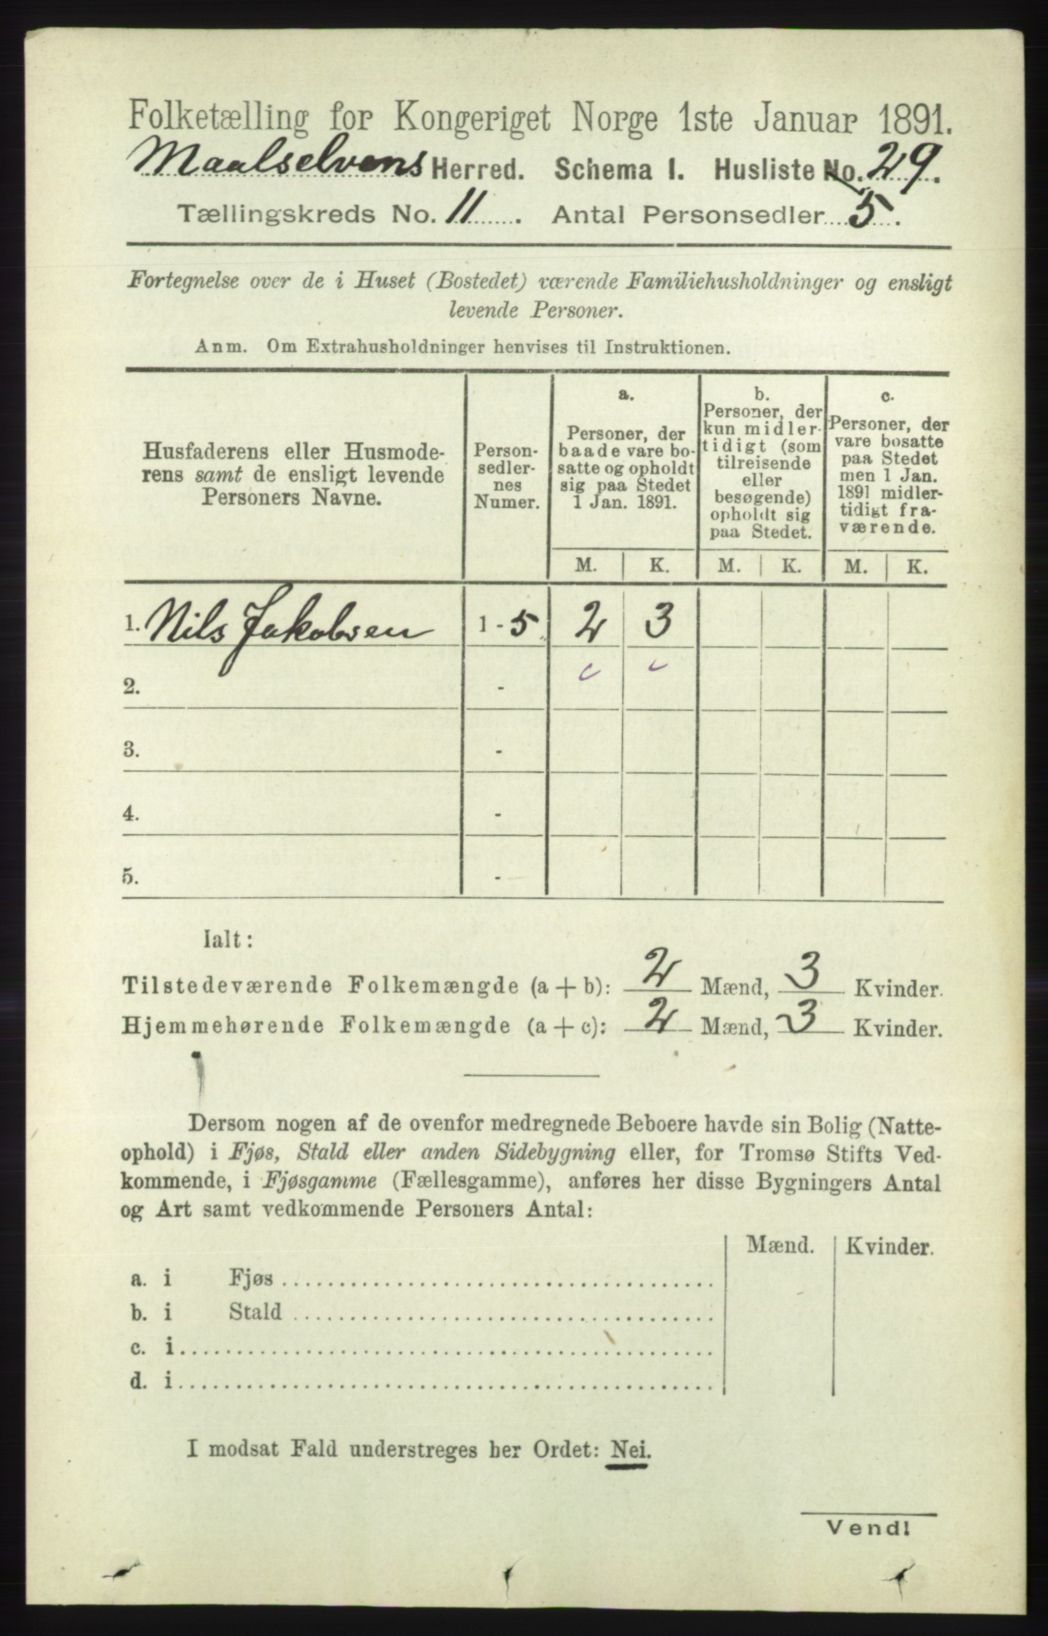 Folketælling for Kongeriget Norge 1ste Januar 1891.
Maalselvens Herred. Schema I. Husliste No. 29.
Tællingskreds No. 11. Antal Personsedler 5.
Fortegnelse over de i Huset (Bostedet) værende Familiehusholdninger og ensligt
levende Personer.
Anm. Om Extrahusholdninger henvises til Instruktionen.
Husfaderens eller Husmode-
rens samt de ensligt levende
Personers Navne.
Person-
sedler-
nes
Numer.
a.
Personer, der
baade vare bo-
satte og opholdt
sig paa Stedet
1 Jan. 1891.
b.
Personer, der
kun midler-
tidigt (som
tilreisende
eller
besøgende)
opholdt sig
paa Stedet.
c.
Personer, der
vare bosatte
paa Stedet
men 1 Jan.
1891 midler-
tidigt fra-
værende.
M. K. M. K. M. K.
1. Nils Jakobsen 1 - 5 2 3
2. -
3. -
4. -
5. -
Ialt:
Tilstedeværende Folkemængde (a + b): 2 Mænd, 3 Kvinder.
Hjemmehørende Folkemængde (a + c): 2 Mænd, 3 Kvinder.
Dersom nogen af de ovenfor medregnede Beboere havde sin Bolig (Natte-
ophold) i Fjøs, Stald eller anden Sidebygning eller, for Tromsø Stifts Ved-
kommende, i Fjøsgamme (Fællesgamme), anføres her disse Bygningers Antal
og Art samt vedkommende Personers Antal:
Mænd. Kvinder.
a. i Fjøs
b. i Stald
c. i
d. i
I modsat Fald understreges her Ordet: Nei.
Vend!